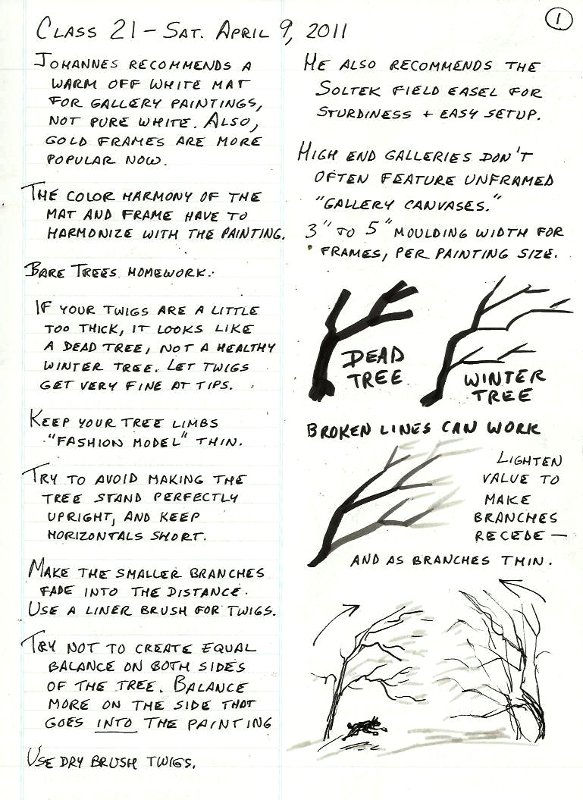 CLASS 21 - SAT. APRIL 9, 2011
1
JOHANNES RECOMMENDS A
WARM OFF WHITE MAT
FOR GALLERY PAINTINGS,
NOT PURE WHITE. ALSO,
GOLD FRAMES ARE MORE
POPULAR NOW.
THE COLOR HARMONY OF THE
MAT AND FRAME HAVE TO
HARMONIZE WITH THE PAINTING.
BARE TREES HOMEWORK:
IF YOUR TWIGS ARE A LITTLE
TOO THICK, IT LOOKS LIKE
A DEAD TREE, NOT A HEALTHY
WINTER TREE. LET TWIGS
GET VERY FINE AT TIPS.
KEEP YOUR TREE LIMBS
"FASHION MODEL" THIN.
TRY TO AVOID MAKING THE
TREE STAND PERFECTLY
UPRIGHT, AND KEEP
HORIZONTALS SHORT.
MAKE THE SMALLER BRANCHES
FADE INTO THE DISTANCE.
USE A LINER BRUSH FOR TWIGS.
TRY NOT TO CREATE EQUAL
BALANCE ON BOTH SIDES
OF THE TREE. BALANCE
MORE ON THE SIDE THAT
GOES INTO THE PAINTING
USE DRY BRUSH TWIGS.
HE ALSO RECOMMENDS THE
SOLTEK FIELD EASEL FOR
STURDINESS + EASY SETUP.
HIGH END GALLERIES DON'T
OFTEN FEATURE UNFRAMED
"GALLERY CANVASES."
3" TO 5" MOULDING WIDTH FOR
FRAMES, PER PAINTING SIZE.
DEAD
TREE
WINTER
TREE
BROKEN LINES CAN WORK
LIGHTEN
VALUE TO
MAKE
BRANCHES
RECEDE —
AND AS BRANCHES THIN.